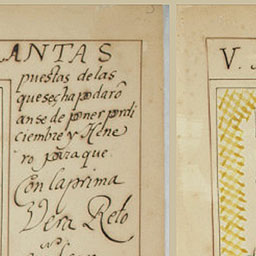 LANTAS
puestas delas
quesechapodarō
anse de poner pordi
ciembre y Hene
ro para que
Con laprima
Vera Reto
V.